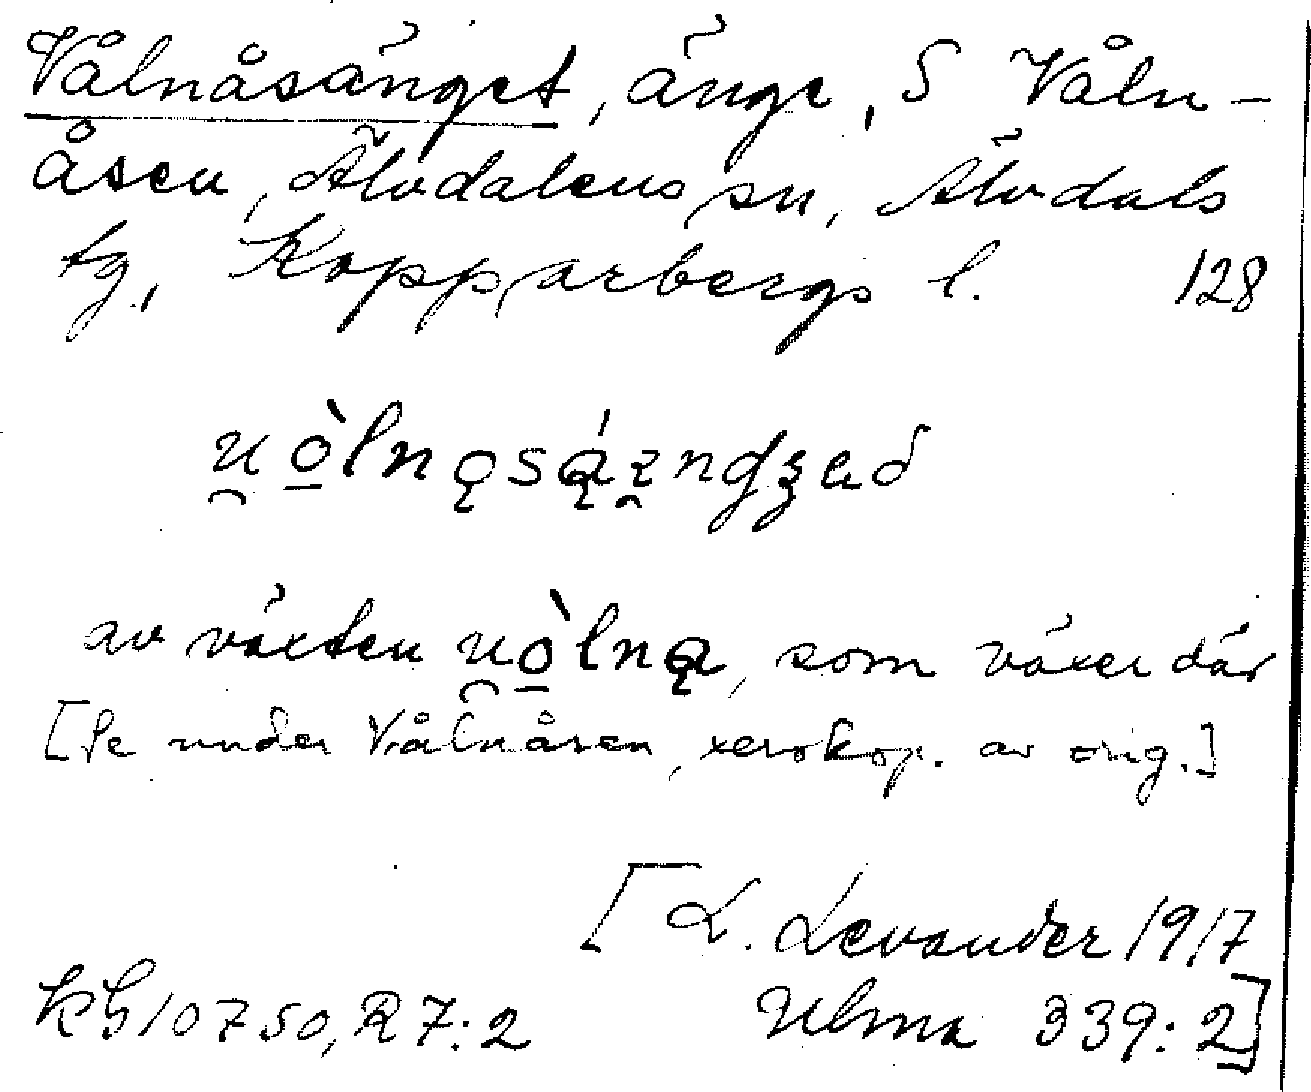 Vålnåsänget, änge, S Våln-
åsen, Älvdalens sn, Älvdals
tg, Kopparbergs l. 128
u̯ò̱lnǫsą́ɪ̯nʤad
av växten u̯ò̱lną, som växer där
[Se under Vålnåsen, xerokop. av orig.]
[L. Levander 1917
Kh 10750, R 7:2 Ulma 339:2]